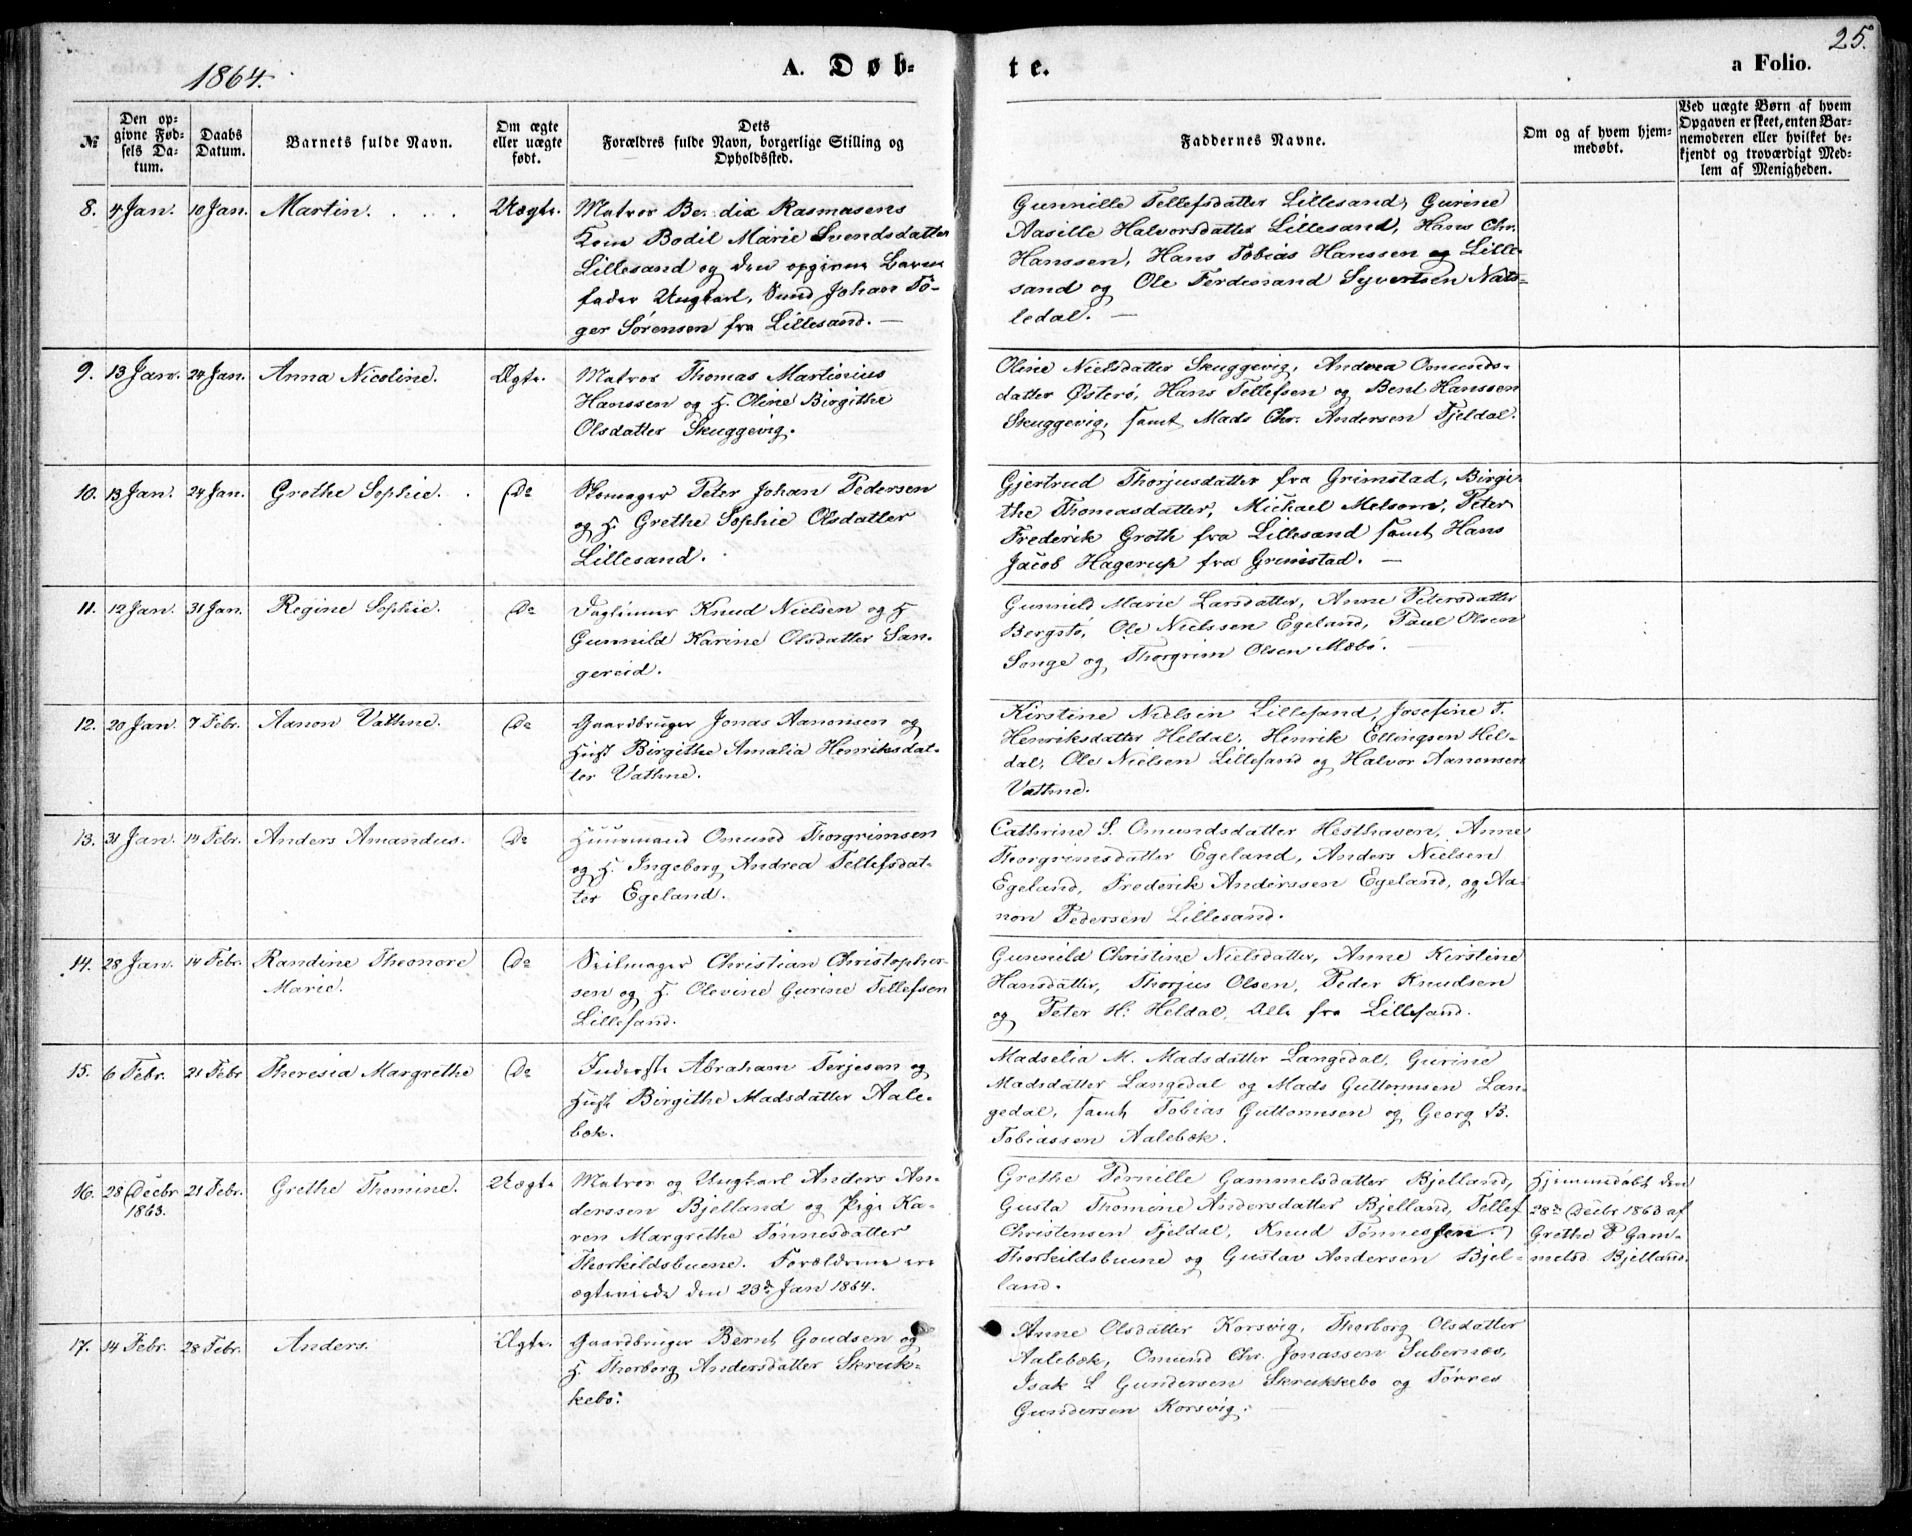 1864.
A. Døb-
te.
25.
a Folio.
№
Den op-
givne Fød-
sels Da-
tum.
Daabs
Datum.
Barnets fulde Navn.
Om ægte
eller uægte
født.
Dets
Forældres fulde Navn, borgerlige Stilling og
Opholdssted.
Faddernes Navne.
Om og af hvem hjem-
medøbt.
Ved uægte Børn af hvem
Opgaven er skeet, enten Bar-
nemoderen eller hvilket be-
kjendt og troværdigt Med-
lem af Menigheden.
8. 4 Jan. 10 Jan. Martin. Uægte.
Matros Bendix Rasmusens
Kone Bodil Marie Svendsdatter
Lillesand og den opgivne Barne
fader Ungkarl, Smed Johan Tø-
ger Sørensen fra Lillesand. —
Gunnille Tellefsdatter Lillesand, Gurine
Aasille Halvorsdatter Lillesand, Hans Chr.
Hanssen, Hans Tobias Hanssen og Lille-
sand og Ole Ferdinand Syvertsen Nats-
ledal. —
9. 13 Jan. 24 Jan. Anna Nicoline. Ægte.
Matros Thomas Martinius
Hanssen og H. Oline Birgithe
Olsdatter Skuggevig.
Oline Nielsdatter Skuggevig, Andrea Omunds-
datter Østerø, Hans Tellefsen og Bent Hanssen
Skuggevig, samt Mads Chr. Andersen Tjeldal.
10. 13 Jan. 24 Jan. Grethe Sophie. Do
Skomager Peter Johan Pedersen
og H. Grethe Sophie Olsdatter
Lillesand.
Gjertrud Thorjusdatter fra Grimstad, Birgi-
the Thomasdatter, Michael Melsom, Peter
Frederik Groth fra Lillesand samt Hans
Jacob Hagerup fra Grimstad. —
11. 12 Jan. 31 Jan. Regine Sophie. Do
Daglønner Knud Nielsen og H
Gunnild Karine Olsdatter San-
gereid.
Gunnild Marie Larsdatter, Anne Petersdatter
Bergstø, Ole Nielssen Egeland, Paul Olsen
Songe og Thorgrim Olsen Mæbø.
12. 20 Jan. 7 Febr. Aanon Vathne. Do
Gaardbruger Jonas Aanonsen og
Hust Birgithe Amalia Henriksdat-
ter Vathne.
Kirstine Nielsen Lillesand, Josefine T.
Henriksdatter Heldal, Henrik Ellingsen Hel-
dal, Ole Nielsen Lillesand og Halvor Aanonsen
Vathne.
13. 31 Jan. 14 Febr. Anders Amandus. Do
Huusmand Omund Thorgrimsen
og H. Ingeborg Andrea Tellefsdat-
ter Egeland.
Cathrine S. Omundsdatter Hesthaven, Anne
Thorgrimsdatter Egeland, Anders Nielsen
Egeland, Frederik Anderssen Egeland, og Aa-
non Pedersen Lillesand.
14. 28 Jan. 14 Febr. Randine Theonore
Marie. Do
Seilmager Christian Christopher-
sen og H. Olevine Gurine Tellefsen
Lillesand.
Gunnild Christine Nielsdatter, Anne Kirstine
Hansdatter, Thorjus Olsen, Peder Knudsen
og Peter H. Heldal, Alle fra Lillesand.
15. 6 Febr. 21 Febr Theresia Margrethe Do
Inderste Abraham Terjesen og
Hust Birgithe Madsdatter Aale-
bæk.
Madselia M. Madsdatter Langedal, Gurine
Madsdatter Langedal og Mads Guttormsen Lan-
gedal, samt Tobias Guttormsen og Georg B.
Tobiassen Aalebæk.
16. 28 Decbr
1863. 21 Febr. Grethe Thomine. Uægte
Matros og Ungkarl Anders An-
derssen Bjelland og Pige Ka-
ren Margrethe Tønnesdatter
Thorkildsbuene. Forældrene ere
ægteviede den 23de Jan 1864.
Grethe Pernille Gammelsdatter Bjelland,
Gusta Thomine Andersdatter Bjelland, Tellef
Christensen Tjeldal, Knud Tønnessen
Thorkildsbuene og Gustav Andersen Bjel-
land.
Hjemmedøbt den
28de Decbr 1863 af
Grethe P Gam-
melsd Bjelland.
17. 14 Febr. 28 Febr. Anders. Ægte.
Gaardbruger Bernt Goudsen og
H. Thorborg Andersdatter Skruk-
kebø.
Anne Olsdatter Korsvig, Thorborg Olsdatter
Aalebæk, Omund Chr. Jonassen Subernæs,
Isak L Gundersen Skrukkebø og Tørres
Gundersen Korsvig.